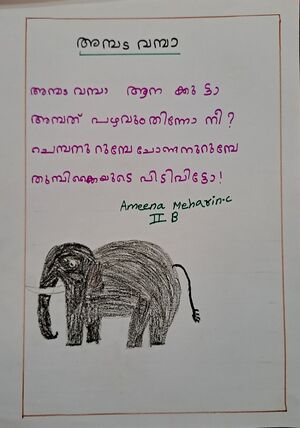 അമ്പട വമ്പാ
അമ്പട വമ്പാ ആന ക്കുട്ടാ
അമ്പത് പഴവും തിന്നോ നീ?
ചെമ്പനുറുമ്പേ ചോണനുറുമ്പേ
തുമ്പികൈയുടെ പിടിവിട്ടോ!
Ameena Meharin.C
II B